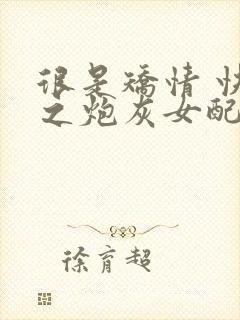 很是矫情 快
之炮灰女配
徐育超